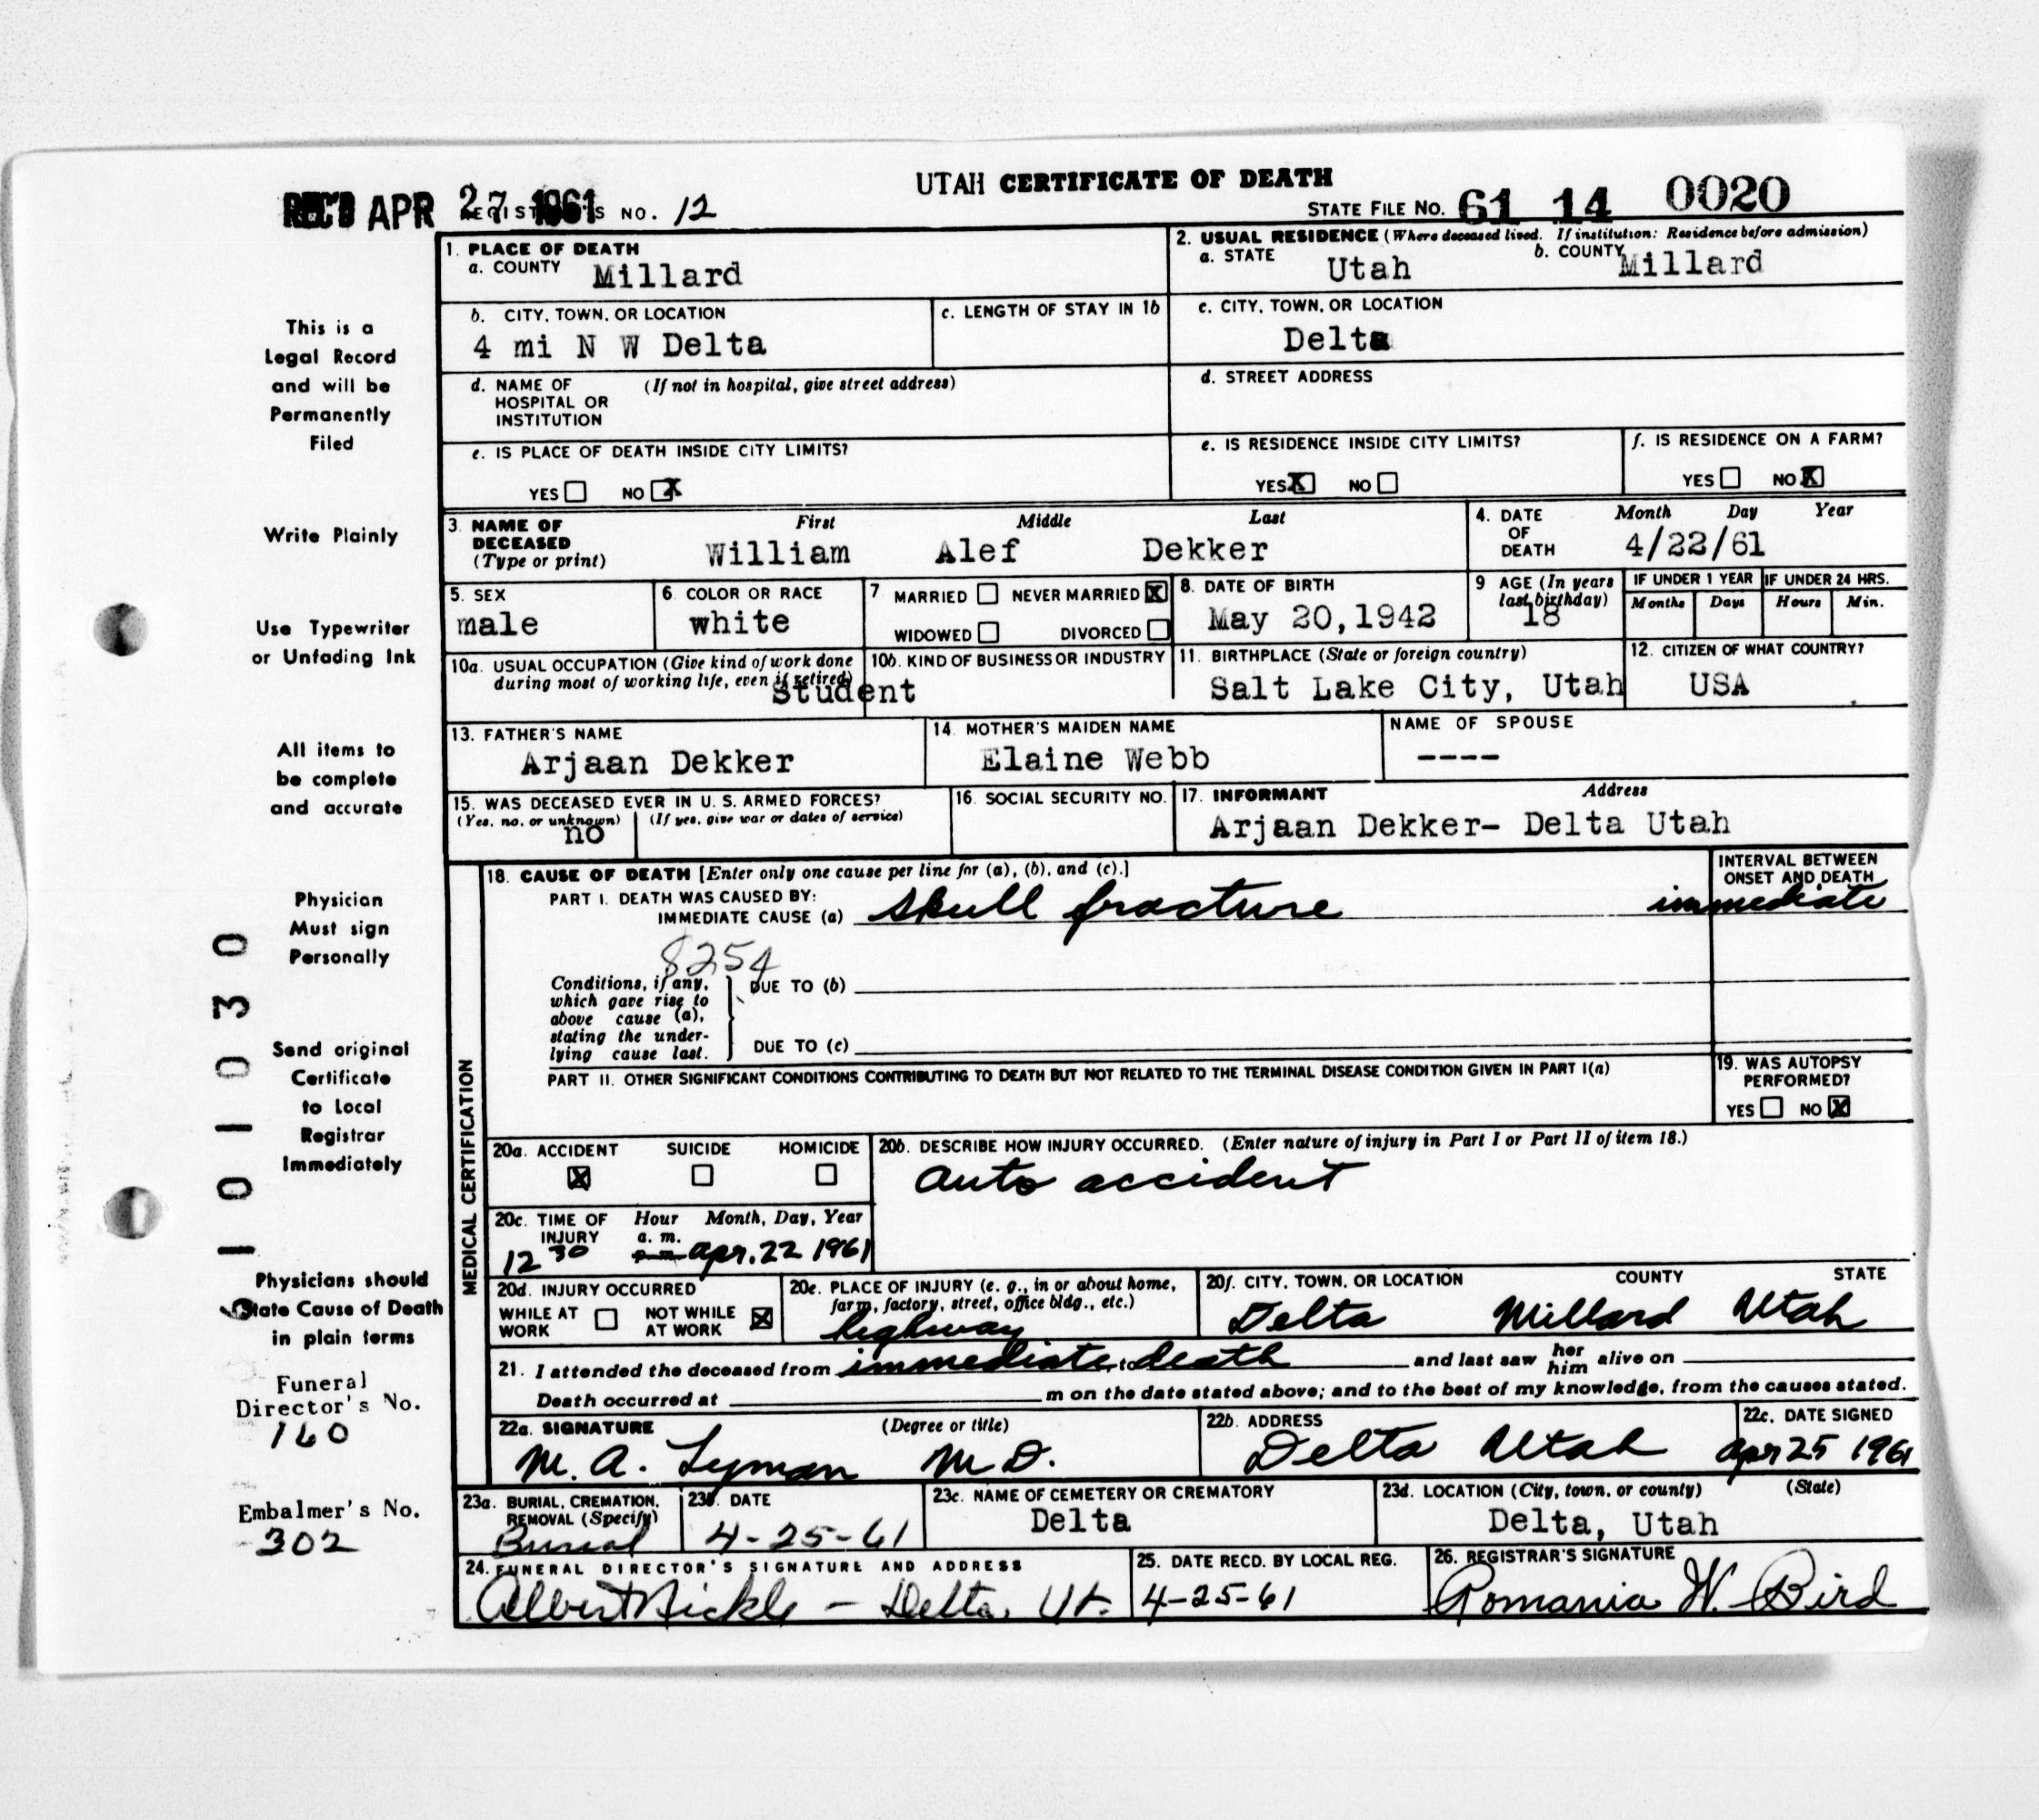 UTAH CERTIFICATE OF DEATH
REC'D APR 27 1961
NO. 12
STATE FILE NO. 61 14 0020
1. PLACE OF DEATH
a. COUNTY Millard
2. USUAL RESIDENCE (Where deceased lived. If institution: Residence before admission)
a. STATE Utah b. COUNTY Millard
b. CITY, TOWN, OR LOCATION
4 mi N W Delta
c. LENGTH OF STAY IN 1b
c. CITY, TOWN, OR LOCATION
Delta
d. NAME OF HOSPITAL OR INSTITUTION (If not in hospital, give street address)
d. STREET ADDRESS
e. IS PLACE OF DEATH INSIDE CITY LIMITS?
YES NO X
e. IS RESIDENCE INSIDE CITY LIMITS?
YES X NO
f. IS RESIDENCE ON A FARM?
YES NO X
3. NAME OF DECEASED (Type or print)
First Middle Last
William Alef Dekker
4. DATE OF DEATH
Month Day Year
4/22/61
5. SEX
male
6. COLOR OR RACE
white
7 MARRIED NEVER MARRIED X
WIDOWED DIVORCED
8. DATE OF BIRTH
May 20,1942
9 AGE (In years last birthday)
18
IF UNDER 1 YEAR
Months Days
IF UNDER 24 HRS.
Hours Min.
10a. USUAL OCCUPATION (Give kind of work done during most of working life, even if retired)
Student
10b. KIND OF BUSINESS OR INDUSTRY
11. BIRTHPLACE (State or foreign country)
Salt Lake City, Utah
12. CITIZEN OF WHAT COUNTRY?
USA
13. FATHER'S NAME
Arjaan Dekker
14. MOTHER'S MAIDEN NAME
Elaine Webb
NAME OF SPOUSE
----
15. WAS DECEASED EVER IN U. S. ARMED FORCES?
(Yes, no, or unknown) (If yes, give war or dates of service)
no
16. SOCIAL SECURITY NO.
17. INFORMANT Address
Arjaan Dekker- Delta Utah
MEDICAL CERTIFICATION
18. CAUSE OF DEATH [Enter only one cause per line for (a), (b), and (c).]
PART I. DEATH WAS CAUSED BY:
IMMEDIATE CAUSE (a) Skull fracture
INTERVAL BETWEEN ONSET AND DEATH
immediate
8254
Conditions, if any, which gave rise to above cause (a), stating the underlying cause last.
DUE TO (b)
DUE TO (c)
PART II. OTHER SIGNIFICANT CONDITIONS CONTRIBUTING TO DEATH BUT NOT RELATED TO THE TERMINAL DISEASE CONDITION GIVEN IN PART I(a)
19. WAS AUTOPSY PERFORMED?
YES NO X
20a. ACCIDENT SUICIDE HOMICIDE
X
20b. DESCRIBE HOW INJURY OCCURRED. (Enter nature of injury in Part I or Part II of item 18.)
auto accident
20c. TIME OF INJURY Hour Month, Day, Year
a. m.
p. m.
12 30 apr. 22 1961
20d. INJURY OCCURRED
WHILE AT WORK NOT WHILE AT WORK X
20e. PLACE OF INJURY (e. g., in or about home, farm, factory, street, office bldg., etc.)
highway
20f. CITY, TOWN, OR LOCATION COUNTY STATE
Delta Millard Utah
21. I attended the deceased from immediate to death and last saw her him alive on
Death occurred at m on the date stated above; and to the best of my knowledge, from the causes stated.
22a. SIGNATURE (Degree or title)
M. A. Lyman M D.
22b. ADDRESS
Delta Utah
22c. DATE SIGNED
apr 25 1961
23a. BURIAL, CREMATION, REMOVAL (Specify)
Burial
23b. DATE
4-25-61
23c. NAME OF CEMETERY OR CREMATORY
Delta
23d. LOCATION (City, town, or county) (State)
Delta, Utah
24. FUNERAL DIRECTOR'S SIGNATURE AND ADDRESS
Albert Nickle - Delta, Ut.
25. DATE RECD. BY LOCAL REG.
4-25-61
26. REGISTRAR'S SIGNATURE
Romania W. Bird
This is a
Legal Record
and will be
Permanently
Filed
Write Plainly
Use Typewriter
or Unfading Ink
All items to
be complete
and accurate
Physician
Must sign
Personally
Send original
Certificate
to Local
Registrar
Immediately
Physicians should
State Cause of Death
in plain terms
Funeral
Director's No.
160
Embalmer's No.
302
1 0 1 0 3 0